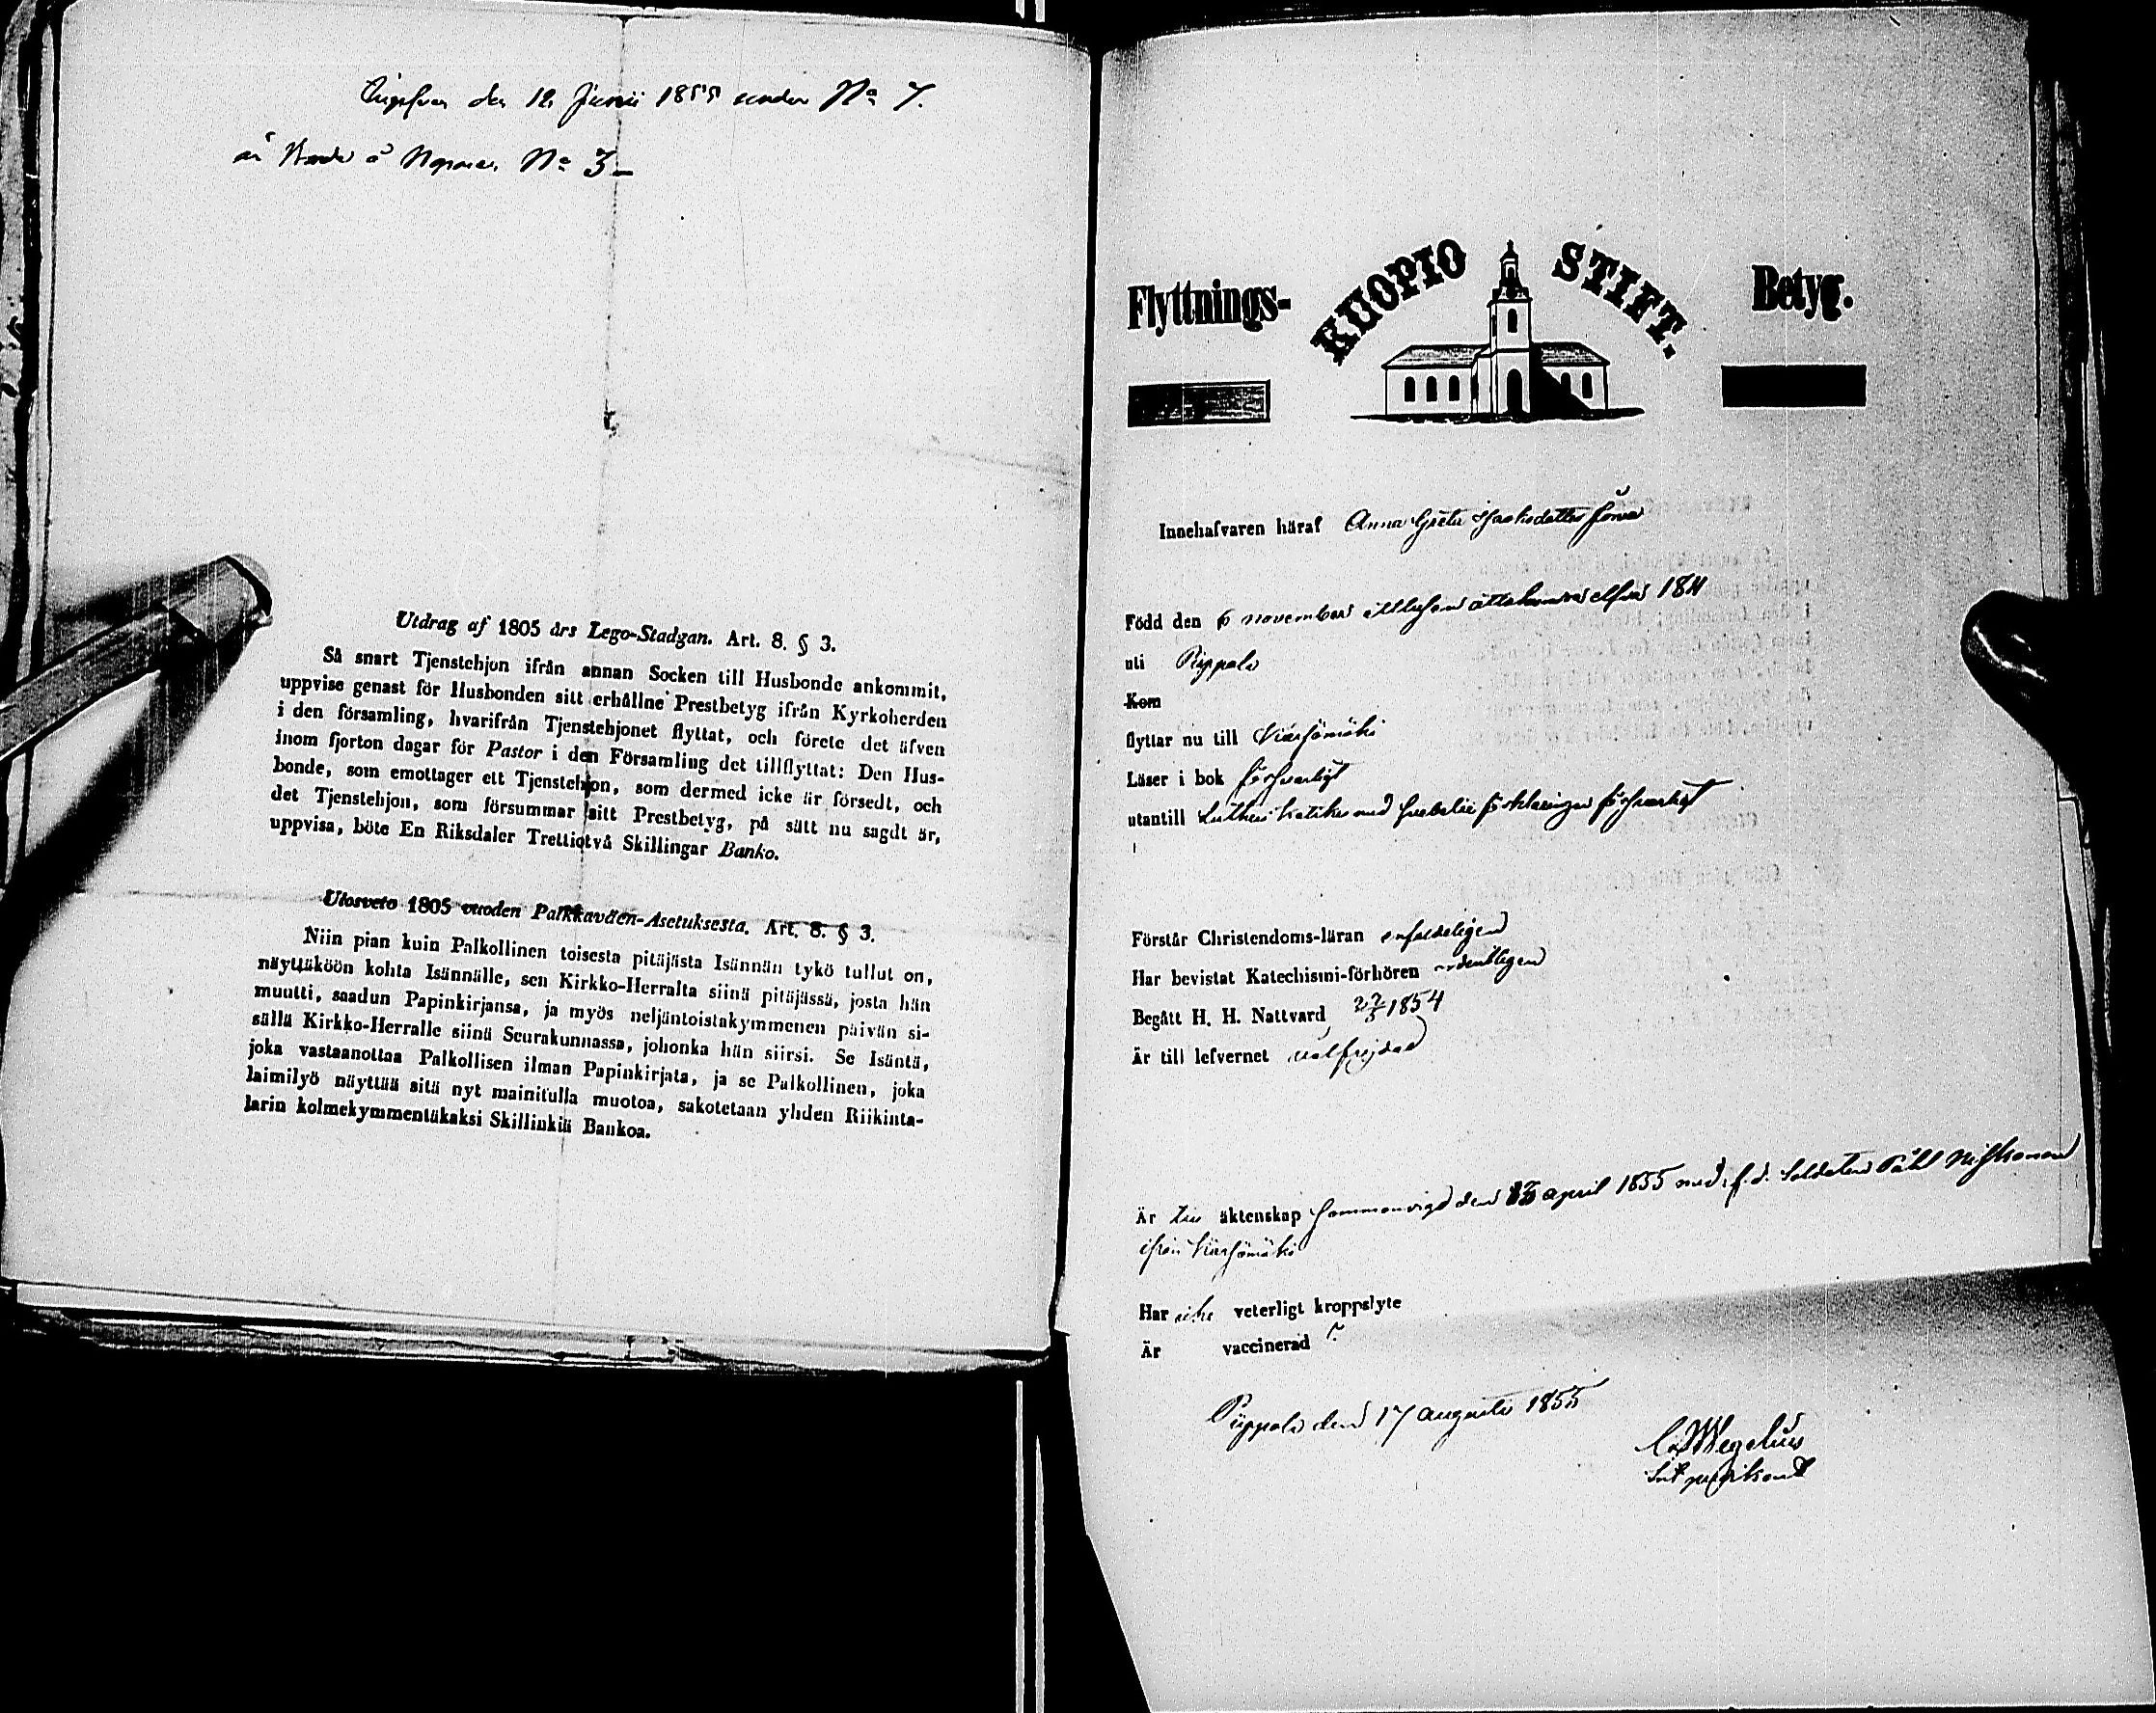 den 12 Junii 1855 under No 7.
No 3
Utdrag af 1805 års Lego-Stadgan. Art. 8. § 3.
Så snart Tjenstehjon ifrån annan Socken till Husbonde ankommit,
uppvise genast för Husbonden sitt erhållne Prestbetyg ifrån Kyrkoherden
i den församling, hvarifrån Tjenstehjonet flyttat, och förete det äfven
inom fjorton dagar för Pastor i den Församling det tillflyttat: Den Hus-
bonde, som emottager ett Tjenstehjon, som dermed icke är försedt, och
det Tjenstehjon, som försummar sitt Prestbetyg, på sätt nu sagdt är,
uppvisa, böte En Riksdaler Trettiotvå Skillingar Banko.
Ulosveto 1805 vuoden Palkkaväen-Asetuksesta. Art. 8. § 3.
Niin pian kuin Palkollinen toisesta pitäjästa Isännän tykö tullut on,
näyttäköön kohta Isännälle, sen Kirkko-Herralta siinä pitäjässä, josta hän
muutti, saadun Papinkirjansa, ja myös neljäntoistakymmenen päivän si-
sällä Kirkko-Herralle siinä Seurakunnassa, johonka hän siirsi. Se Isäntä,
joka vastaanottaa Palkollisen ilman Papinkirjata, ja se Palkollinen, joka
laimilyö näyttää sitä nyt mainitulla muotoa, sakotetaan yhden Riikinta-
larin kolmekymmentäkaksi Skillinkiä Bankoa.
Flyttnings- KUOPIO STIFT. Betyg.
Innehafvaren häraf Anna Greta
Född den 6 november ettusend åttahundrad elfva 1811
uti Pippola
Kom
flyttar nu till Kärsämäki
Läser i bok försvarligt
utantill Lutheri försvarligt
Förstår Christendoms-läran enfaldeligen
Har bevistat Katechismi-förhören ordentligen
Begått H. H. Nattvard 27/5 1854
Är till lefvernet välfrejdad
Är äktenskap sammanvigd den april 1855 med f. d. Soldaten Påhl Niskanen
ifrån Kärsämäki
Har icke veterligt kroppslyte
Är vaccinerad
Pippola den 17 augusti 1855
Wegelius